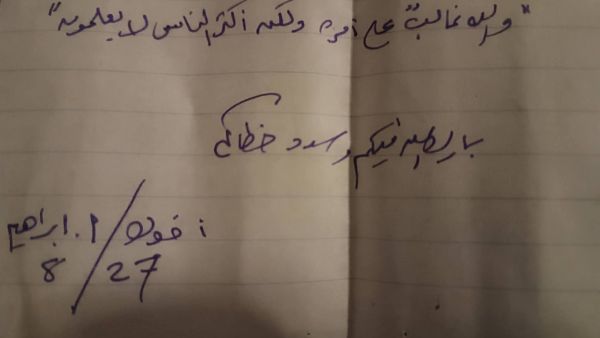 "والله غالبٌ على أمره ولكن أكثر الناس لا يعلمون"
بارك الله فيكم وسدد خطاكم
أخوكم / ا. ابراهيم
27 / 8